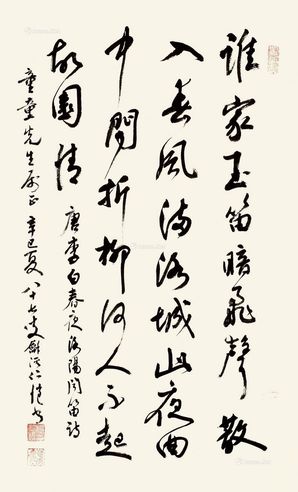 誰家玉笛暗飛聲散
入春風滿洛城此夜曲
中聞折柳何人不起
故園情 唐李白春夜洛陽聞笛詩
童童先生屬正 辛巳夏八十七叟 仁愷書